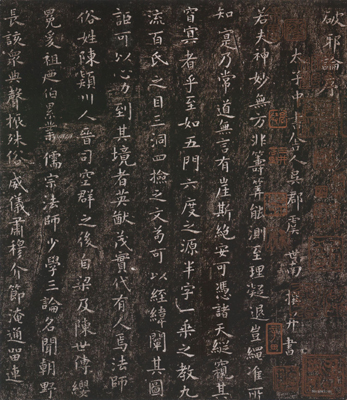 破邪論序
太子中書舍人吳郡虞世南撰并書
若夫神妙無方非籌筭能測至理凝邈豈繩准所
知寔乃常道無言有崖斯絕安可憑諸天縱窺其
窅冥者乎至如五門六度之源半字一乘之教九
流百氏之目三洞四撿之文苟可以經緯闡其圖
詎可以心力到其境者英猷茂實代有人焉法師
俗姓陳潁川人晉司空群之後自梁及陳世傳纓
冕爰祖迺伯累業儒宗法師少學三論名聞朝野
長該衆典聲振殊俗威儀肅穆介節淹通留連